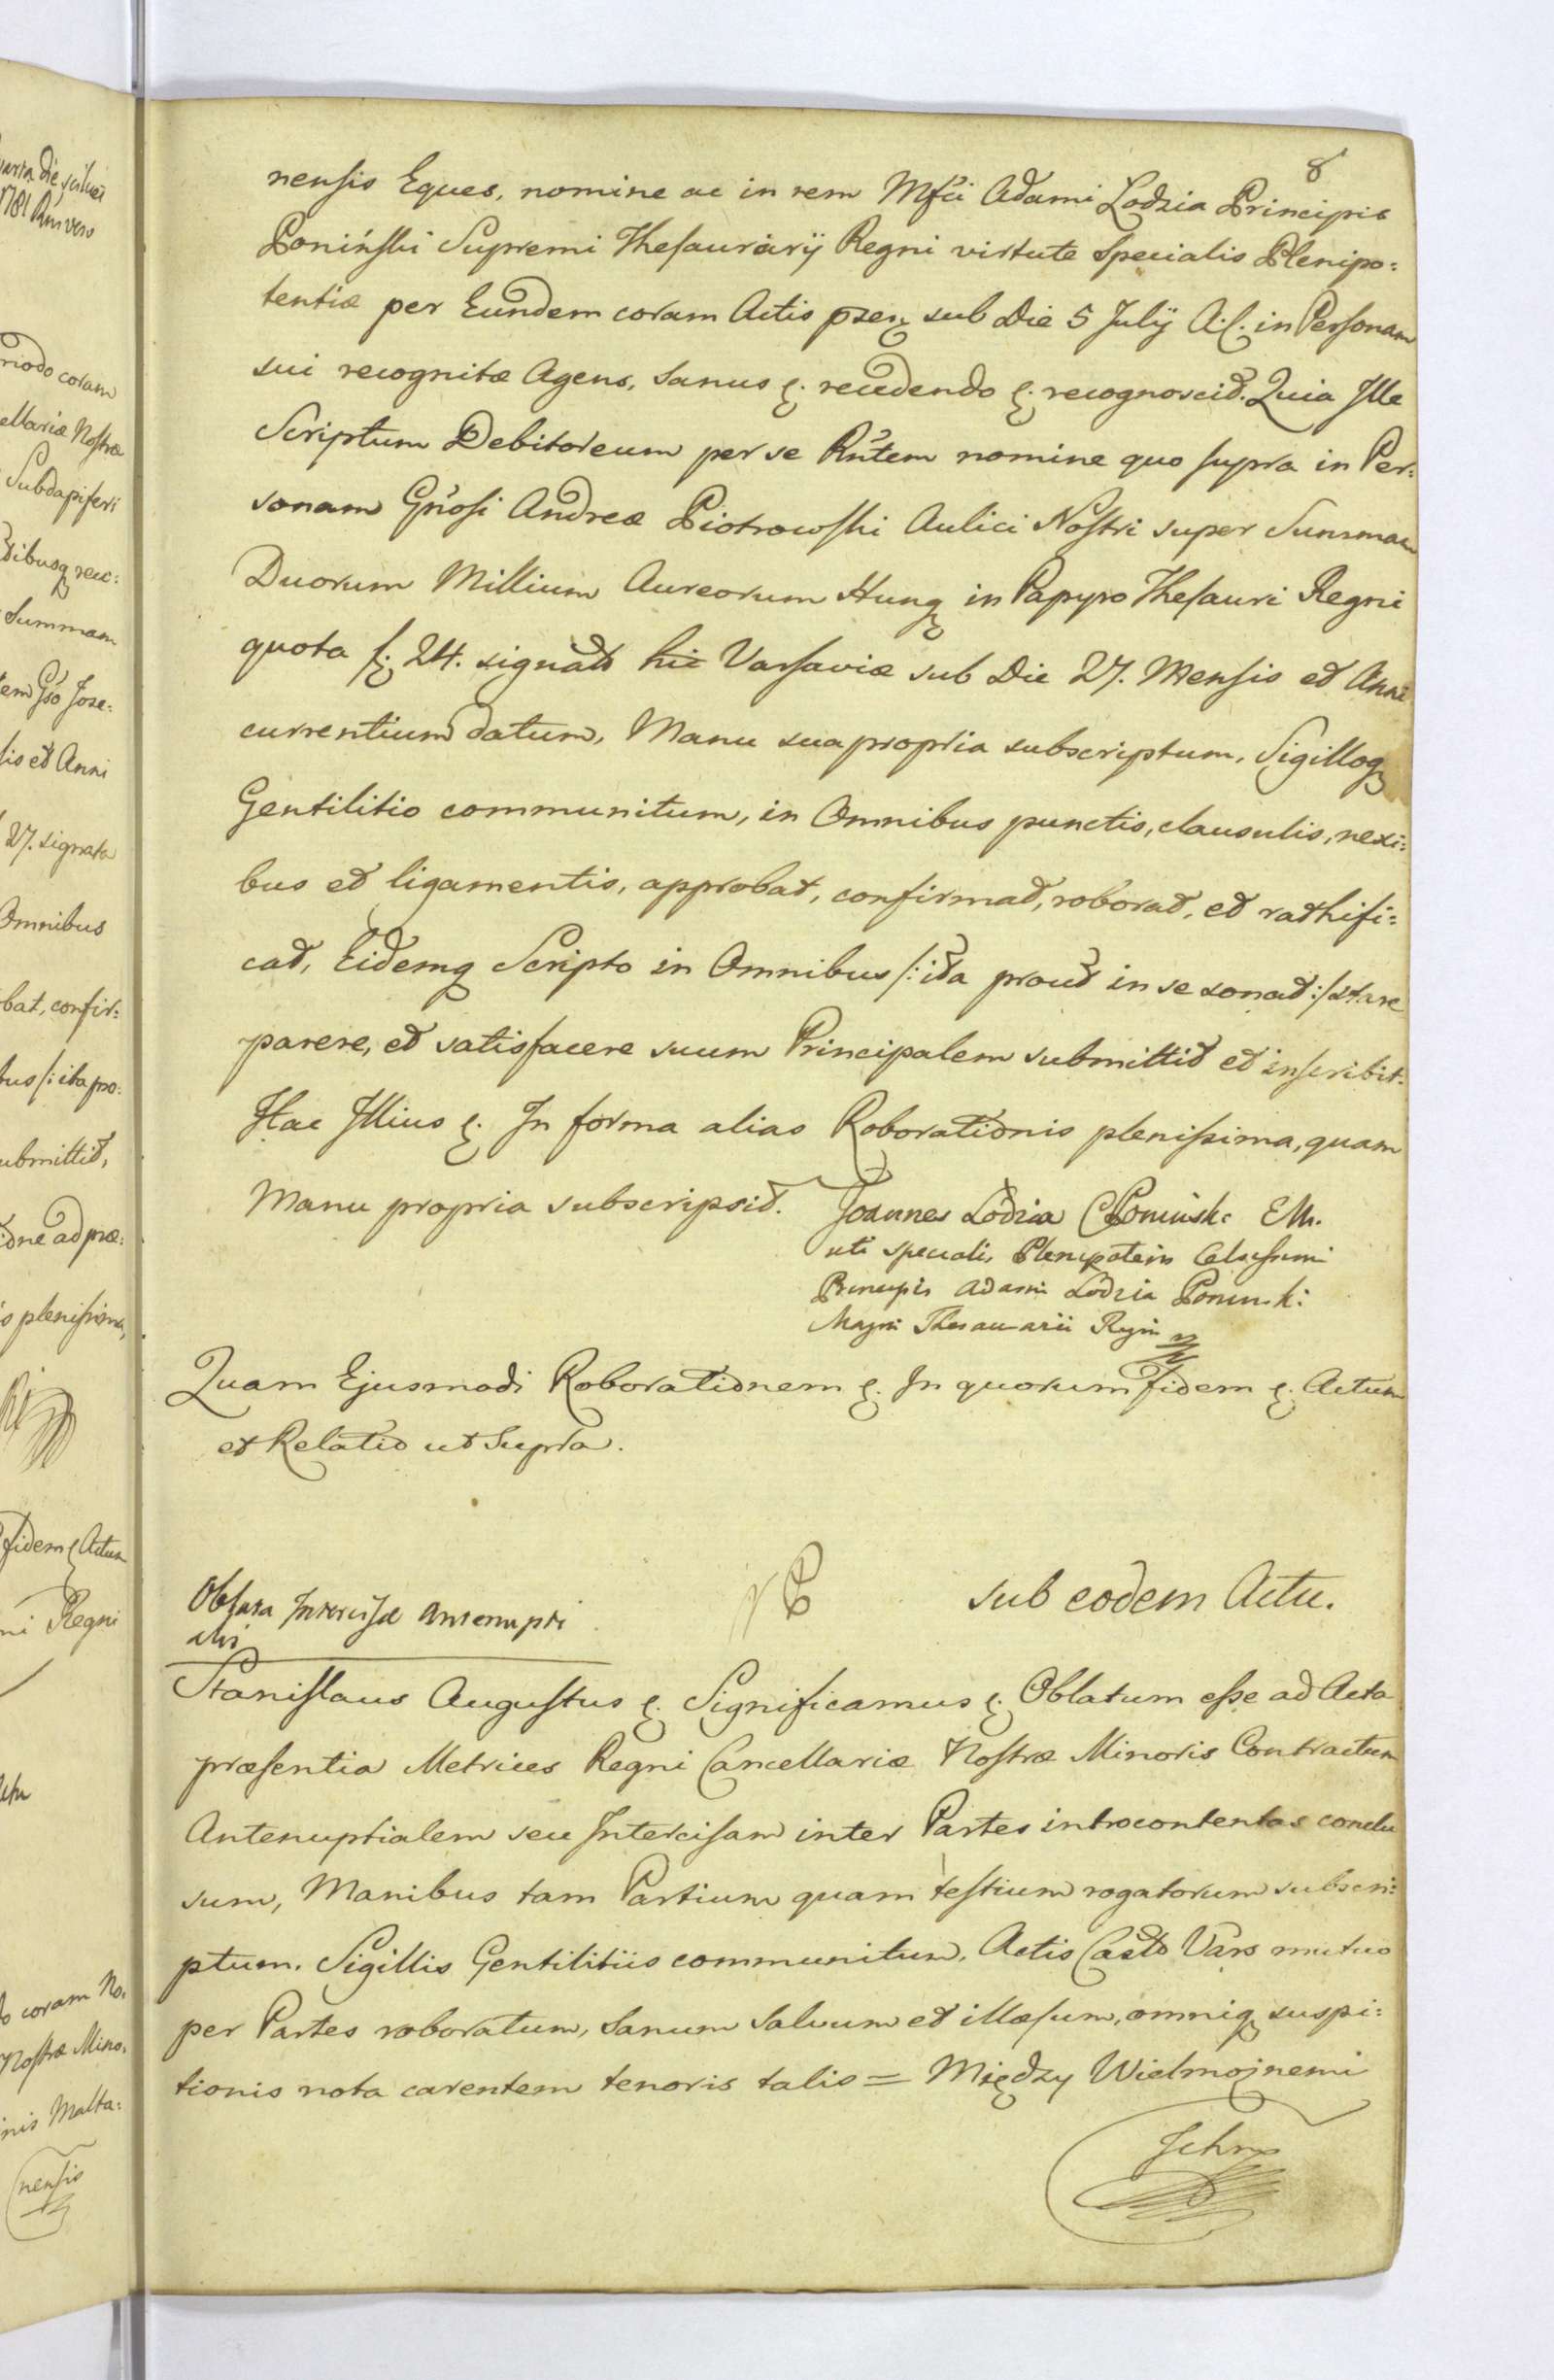 8
nensis Eques, nomine ac in rem Mfci Adami Lodzia Principis
Poniński Supremi Thesaurarij Regni virtute Specialis Plenipo:
tentiæ per Eundem coram Actis psen sub Die 5 Julij A. C. in Personam
sui recognitæ Agens, Sanus &. recedendo &. recognoscit. Quia Ille
Scriptum Debitoreum per se Rntem nomine quo supra in Per:
sonam Gnosi Andreæ Piotrowski Aulici Nostri super Summam
Duorum Millium Aureorum Hung in Papyro Thesauri Regni
quota f. 24. signato hic Varsaviæ sub Die 27. Mensis et Anni
currentium datum, Manu sua propria subscriptum, Sigilloq
Gentilitio communitum, in Omnibus punctis, clausulis, nexi:
bus et ligamentis, approbat, confirmat, roborat, et rathifi:
cat, Eidemq Scripto in Omnibus /: ita prout in se sonat :/ stare
parere, et satisfacere suum Principalem submittit et inscribit.
Hac Illius &. In forma alias Roborationis plenissima, quam
Manu propria subscripsit. Joannes Lodzia Poninski EM.
uti specialis Plenipotens Celsissimi
Principis Adami Lodzia Poninski
Magni Thesaurarii Regni
Quam Ejusmodi Roborationem &. In quorum fidem &. Actum
et Relatio ut Supra.
sub eodem Actu.
Oblata Intercisæ Antenupti
alis
Stanislaus Augustus &. Significamus &. Oblatum esse ad Acta
præsentia Metrices Regni Cancellariæ Nostræ Minoris Contractum
Antenuptialem seu Intercisam inter Partes introcontentas conclu
sum, Manibus tam Partium quam testium rogatorum subscri:
ptum. Sigillis Gentilitiis communitum. Actis Castr Vars mutuo
per Partes roboratum, Sanum Salvum et illæsum, omniq suspi:
tionis nota carentem tenoris talis = Między Wielmożnemi